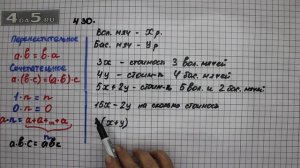 4О5.ru
430.
Переместительное
a·b = b·a
Сочетательное
a·(b·c)=(a·b)·c
1·n = n
0·n = 0
a·n = a+a+...+a
n
a·b·c = abc
Вол. мяч - x р.
Бас. мяч - y р.
3x - стоимость 3 вол. мячей
4y - стоим-ть 4 бас. мячей
5x + 2y - стоим-ть 5 вол. и 2 бас. мячей
15x - 2y на сколько стоимость
(x+y)